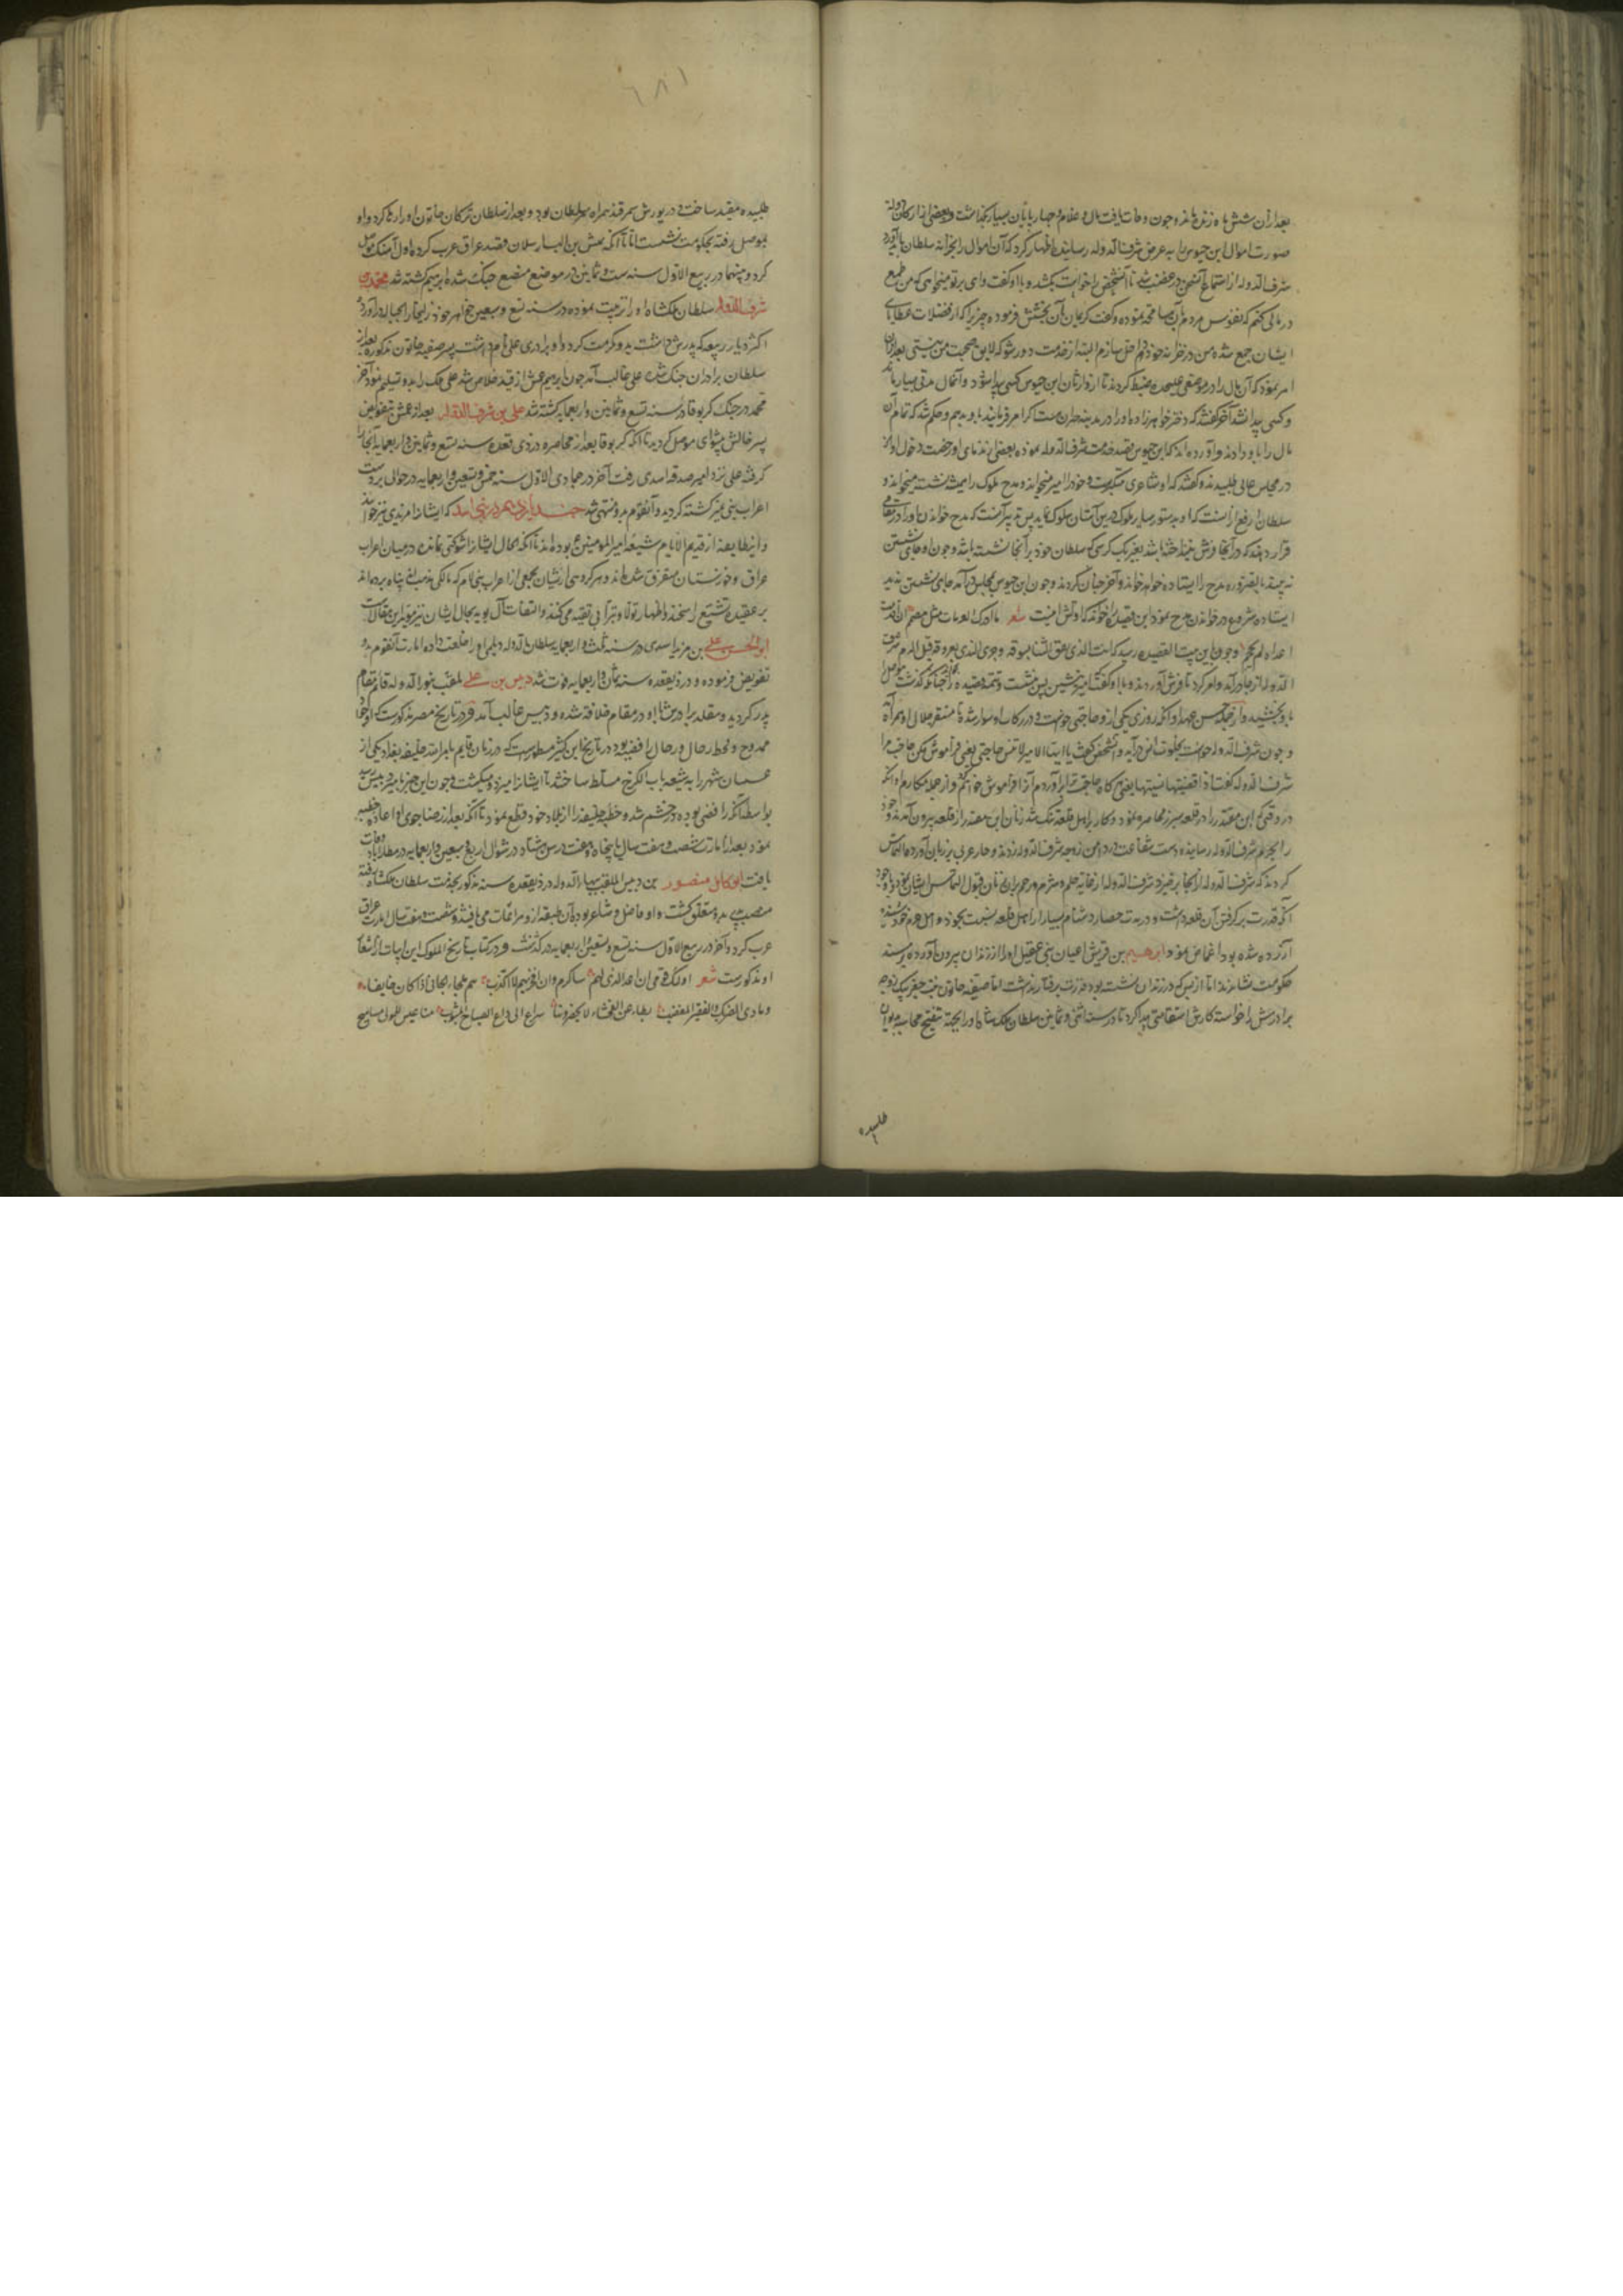 بعد از آن شش ماه زنده ماند و چون وفات یافت مال و غلام و چهار پایان بسیار بگذاشت و بعضی از ارکان دوله
صورت اموال ابن حیوس را به عرض شرف الدوله رسانیده اظهار کرد که آن اموال را بخزانه سلطان باید آورد
شرف الدوله از استماع آن سخن در غضب شد تا آن شخص را خواست بکشد و با او گفت وای بر تو میخواهی که من طمع
در مالی کنم که نفوس مردم بآن مسامحه نموده و کف کریمان بآن بخشش فرموده چیزی را که از فضلات عطایای
ایشان جمع شده من در خزانه خود داخل سازم البته از خدمت دور شو که لایق صحبت من نیستی بعد از آن
امر نمود که آن مال را در موضعی علیحده ضبط کردند تا از وارثان ابن حیوس کسی پیدا شود و آن مال مدتی بسیار ماند
و کسی پیدا نشد آخر گفتند که دختر خواهرزاده او را در مدینه حران هست اگر امر فرمایند باو بدهیم و حکم شد که تمام آن
مال را باو دادند و آورده اند که ابن حیوس قصد خدمت شرف الدوله نموده بعضی ندمای او رخصت دخول او
در مجلس عالی طلبیدند و گفتند که او شاعری متکبرست و خود را امیر میخواند و مدح ملوک را همیشه نشسته میخواند و
سلطان ارفع از آنست که او بدستور سایر ملوک درین آستان سلوک نماید پس تدبیر آنست که مدح خواندن او را در مقامی
قرار دهند که در آنجا فرش نینداخته باشند بغیر یک کرسی که سلطان خود بر آنجا نشسته باشد و چون او جای نشستن
نه بیند بالضروره مدح را ایستاده خواهد خواند و آخر چنان کردند و چون ابن حیوس بمجلس در آمد جای نشستن ندید
ایستاده شروع در خواندن مدح نمود این قصیده را خواند که اولش اینست شعر ما ادرک الطلبات مثل مصمم ان اقدمت
اعداءه لم یحجم و چون باین بیت القصیده رسید که انت الذی نفق الثناء بسوقه و جری الندی بعروقه قبل الدم شرف
الدوله از جا در آمد و امر کرد تا فرش آوردند و با او گفت ایها الامیر بنشین پس بنشست و تتمه قصیده را
باو بخشید و از جمله حسن عهد او آنکه روزی یکی از و حاجتی خواست و در رکاب او سوار شده تا مستقر جلال او همراه
و چون شرف الدوله خواست بخلوت خاص درآید و آن شخص گفت یا ایها الامیر لا تنس حاجتی یعنی فراموش مکن حاجت مرا
شرف الدوله گفت اذا قضیتها نسیتها یعنی هرگاه حاجت ترا برآوردم آنرا فراموش خواهم کرد و از جمله مکارم او آنکه
در وقتی که ابن منقذ را در قلعه شیزر محاصره نمود و کار بر اهل قلعه تنگ شد زنان ابن منقذ از قلعه بیرون آمدند و خود
را بحرم شرف الدوله رسانیده دست شفاعت در دامن زوجه شرف الدوله زدند
کردند که شرف الدوله از آنجا برخیزد شرف الدوله از غایت حلم و شرم و مرحم بر آن زنان قبول التماس ایشان نمود با وجود
آنکه قدرت بر گرفتن آن قلعه داشت و در مدت حصار دشنام بسیار از اهل قلعه نسبت بخود و اهل حرم خود شنیده
آزرده شده بود اغماض نمود و ابراهیم بن قریش اعیان بنی عقیل او را از زندان بیرون آورده بر مسند
حکومت نشاندند اما از بس که در زندان نشسته بود قدرت بر رفتار نداشت اما صفیه خاتون بنت جغر بیک زوجه
برادرش را خواسته کارش استقامتی پیدا کرد تا در سنه اثنی و ثمانین سلطان ملک شاه او را بجهة تنقیح محاسبه دیوان
طلبیده
۱۸۱
طلبیده مقید ساخت و در یورش سمرقند همراه سلطان بود و بعد از سلطان ترکان خاتون او را رها کرد و او
بموصل رفته بحکومت نشست تا آنکه تتش بن الب ارسلان قصد عراق عرب کرده اول آهنگ موصل
کرد و بینهما در ربیع الاول سنه ست و ثمانین در موضع مضیع جنگ شده ابراهیم کشته شد محمد بن
شرف الدوله سلطان ملکشاه او را تربیت نموده در سنه تسع و سبعین خواهر خود زلیخا را بحباله او درآورد و
اکثر دیار ربیعه که پدرش داشت بدو مکرمت کرد و او برادری علی نام داشت پسر صفیه خاتون مذکوره بعد از
سلطان برادران جنگ شده علی غالب آمد چون ابراهیم عمش از قید خلاص شد علی ملک را بدو تسلیم نمود آخر
محمد در جنگ کربوقا در سنه تسع و ثمانین و اربعمایه کشته شد علی بن شرف الدوله بعد از عمش بتفویض
پسر خالش پیشوای موصل گردید تا آنکه کربوقا بعد از محاصره در ذی قعده سنه تسع و ثمانین و اربعمایه آنجا را
گرفته علی نزد امیر صدقه اسدی رفت آخر در جمادی الاول سنه خمس و تسعین و اربعمایه در حوالی بر دست
اعراب بنی نمیر کشته گردید و آن قوم بدو منتهی شد جند یازدهم در بنی اسد که ایشانرا مزیدی نیز خوانند
و این طایفه از قدیم الایام شیعه امیر المومنین ع بوده اند تا آنکه بحال ایشانرا شوکتی نمانده در میان اعراب
عراق و خوزستان متفرق شده اند و هر گروهی از ایشان بجمعی از اعراب بنی لام که مالکی مذهب اند پناه برده اند
بر عقیده تشیع راسخند و اظهار تولا و تبرا بی تقیه می کنند و التفات آل بویه بحال ایشان نیز مؤید این مقالات
ابو الحسن علی بن مزید اسدی در سنه ثلث و اربعمایه سلطان الدوله دیلمی او را خلعت داده امارت آن قوم بدو
تفویض فرموده و در ذیقعده سنه ثمان و اربعمایه فوت شد دبیس بن علی ملقب بنور الدوله قایم مقام
پدر گردید و مقلد برادرش با او در مقام خلاف شده و دبیس غالب آمد و در تاریخ مصر مذکورست که او جواد
ممدوح و محط رحال و رجال رافضیه بود در تاریخ ابن کثیر مسطورست که در زمان قایم بامر الله خلیفه بغداد یکی از
شهر را به شیعه باب الکرخ مسلط ساخته تا ایشانرا میزد و میکشت و چون این خبر بامیر دبیس رسید
بواسطه آنکه رافضی بوده در خشم شد و خطبه خلیفه را از بلاد خود قطع نمود تا آنکه بعد از رضا جوی او اعاده خطبه
نمود بعد از امارت شصت و هفت سال یا پنجاه و هفت در سن هشتاد در شوال اربع و سبعین و اربعمایه در مطیراباد وفات
یافت ابو کامل منصور بن دبیس الملقب ببهاء الدوله در ذیقعده سنه مذکور بخدمت سلطان ملکشاه رفته
منصب پدر بدو متعلق گشت و او فاضل و شاعر بوده آن طبقه ازو مراعات می یافتند
عرب کرد و آخر در ربیع الاول سنه تسع و سبعین و اربعمایه در گذشت و در کتاب تاریخ الملوک این ابیات از اشعار
او مذکورست شعر اولئک قومی ان اعد الذی لهم اکرم وان افخر بهم لا اکذب هم ملجاء الجانی اذا کان خایفا
و ماوی الضریک والفقیر المعصب بطاء عن الفحشاء لا یحضرونها سراع الی داع الصباح المثوب مناعیش للمولی مسامیح